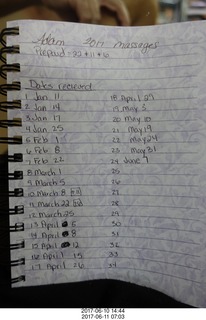 Adam 2017 massages
Prepaid = 20 + 11 + 6
Dates received
1 Jan 11 18 April 29
2 Jan 14 19 May 3
3 Jan 17 20 May 10
4 Jan 25 21 May 19
5 Feb 1 22 May 24
6 Feb 8 23 May 31
7 Feb 22 24 June 7
8 March 1 25
9 March 5 26
10 March 8 27
11 March 22 28
12 March 25 29
13 April 6 30
14 April 8 31
15 April 12 32
16 April 15 33
17 April 26 34
2017-06-10 14:44
2017-06-11 07:03